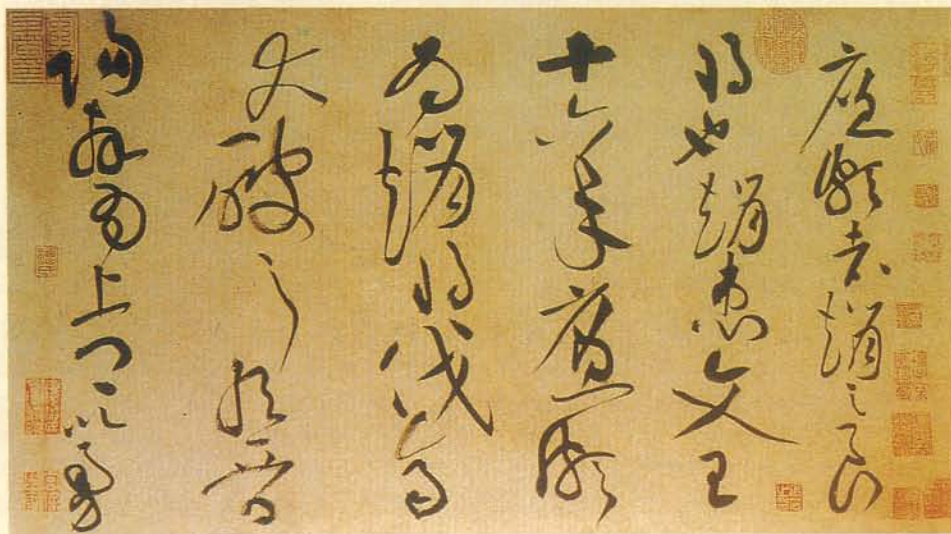 廉頗者趙之良
將也趙惠文王
十六年廉頗
為趙將伐齊
大破之取晉
陽拜為上卿以勇